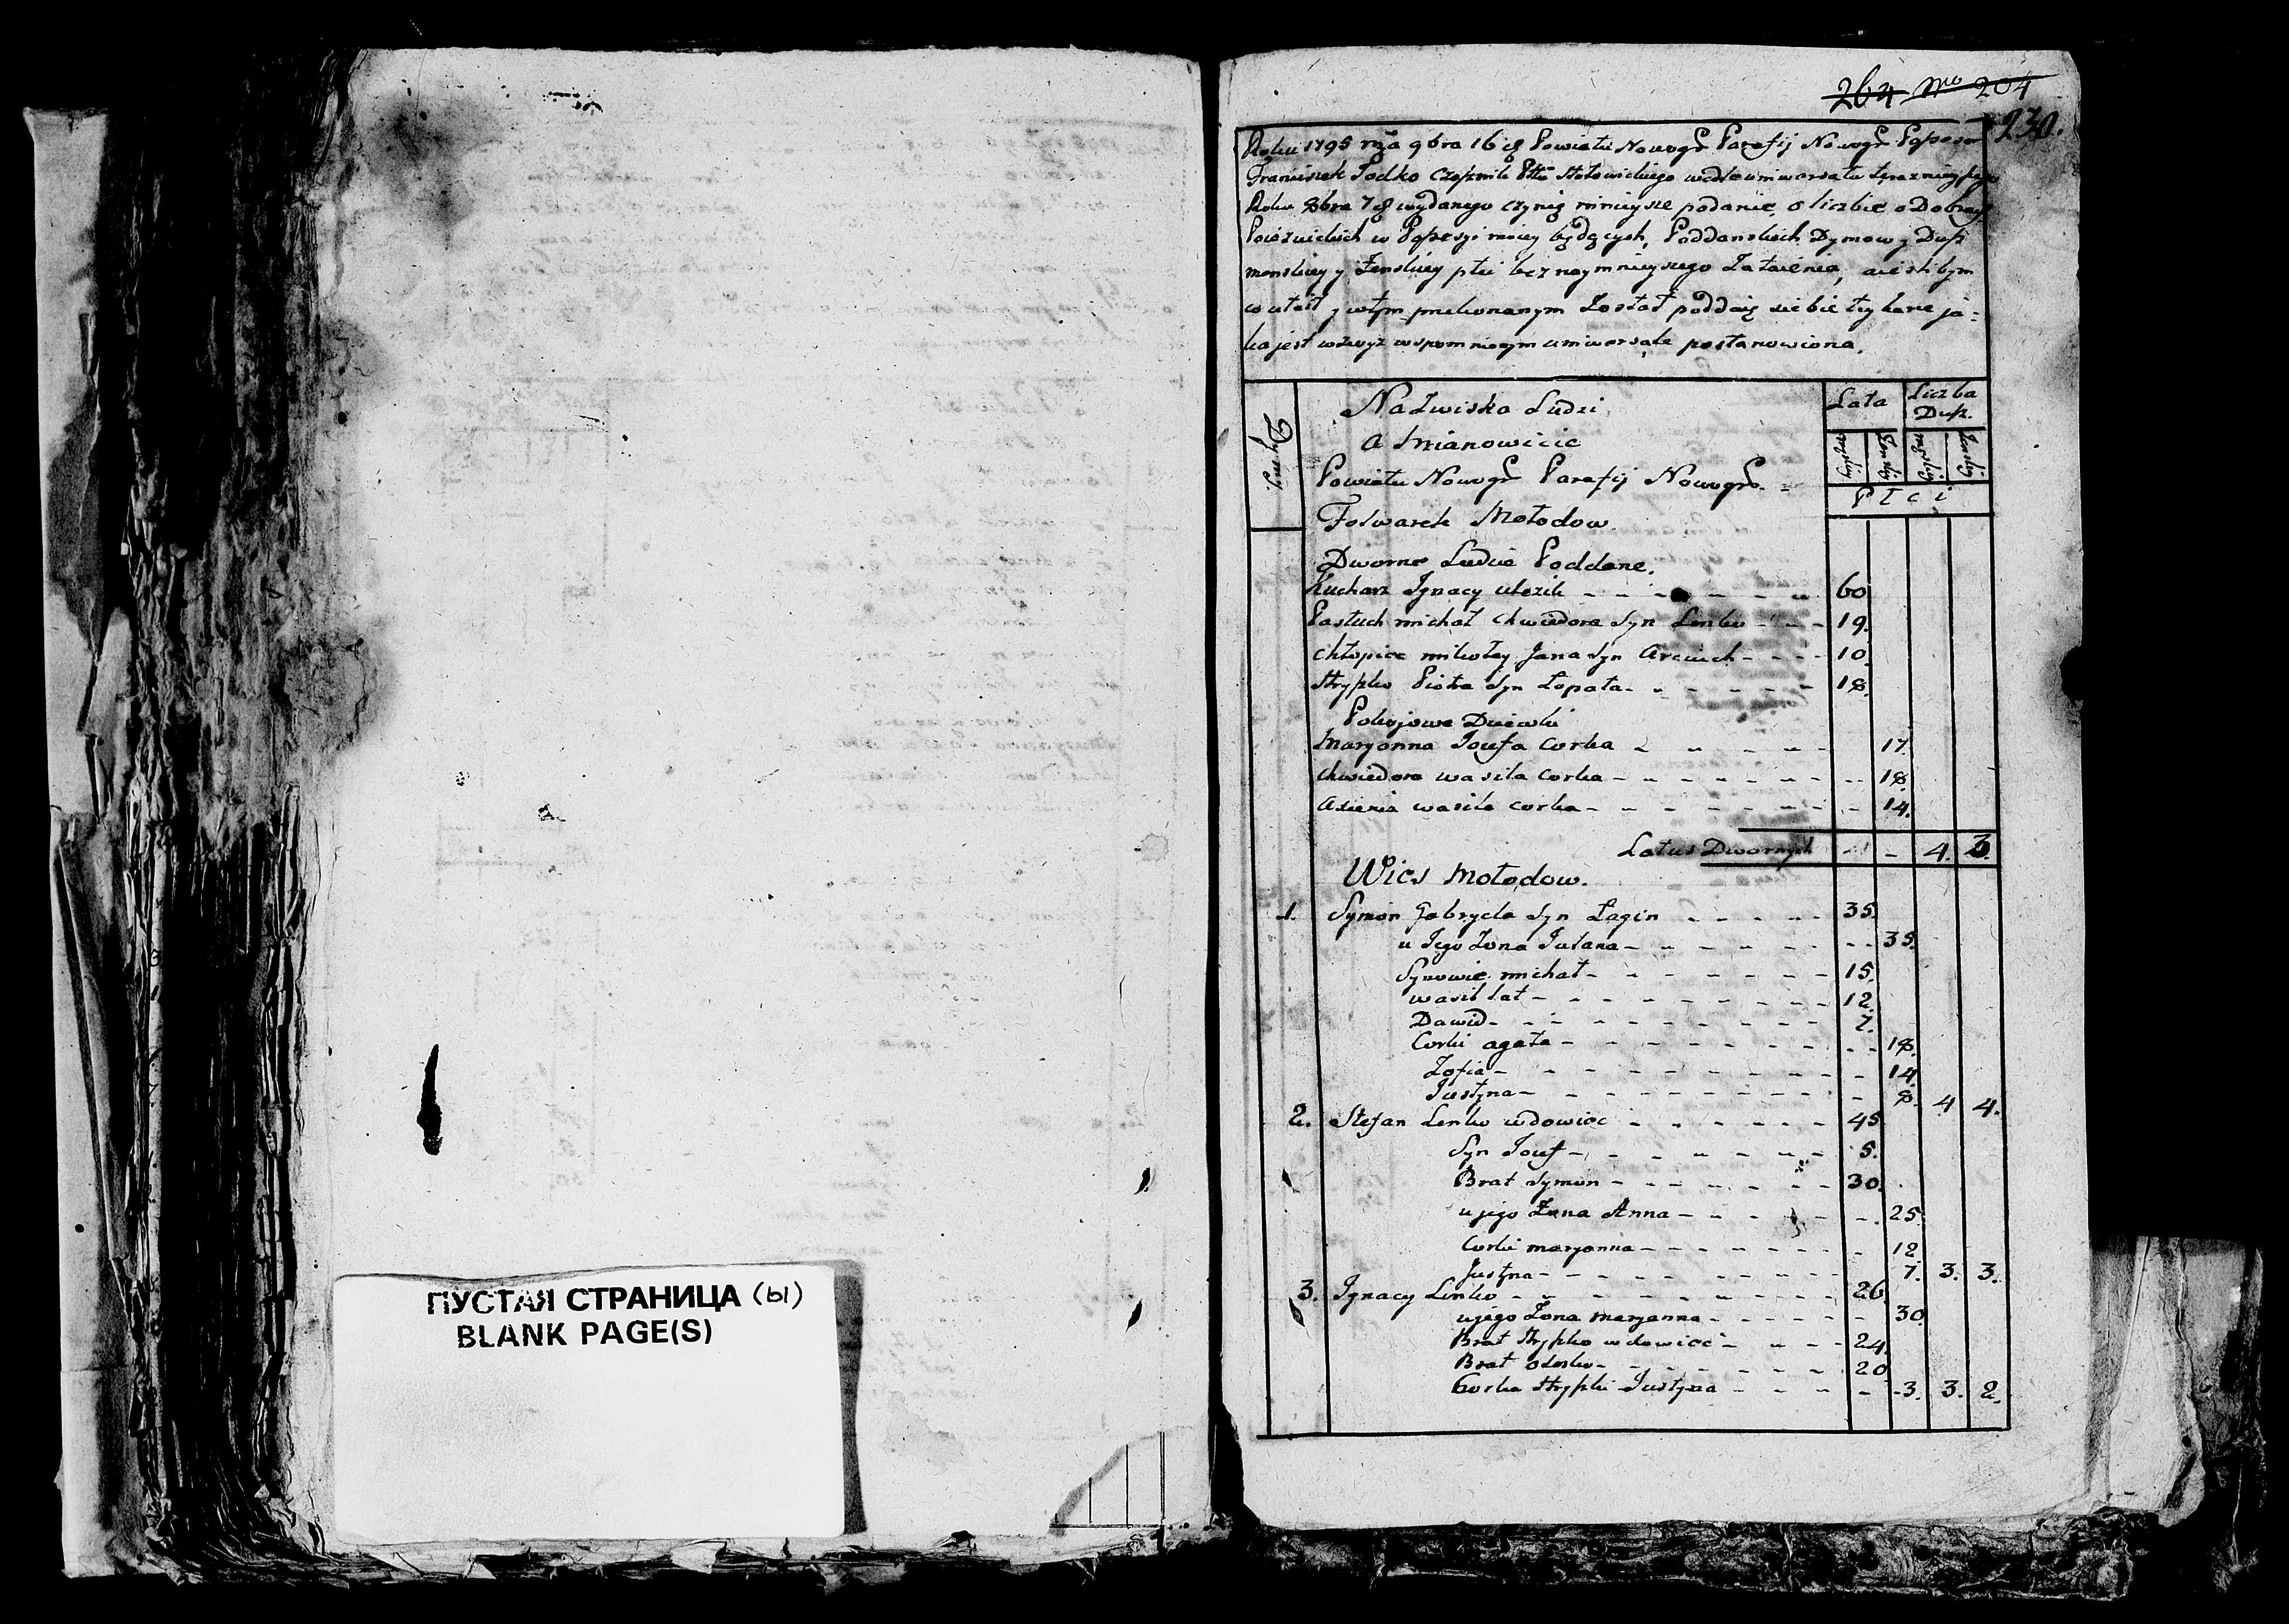 ПУСТАЯ СТРАНИЦА (ы)
BLANK PAGE(S)
264 Nro 204
230.
Roku 1795 mca 9bra 16 d Powiatu Nowogr Parafij Nowogr Posesor
Franciszek Jodko Czesznik Pttu Słołowickiego wedle uniwersału
Roku 8bra 7 d wydanego czynię ninieysze podanie, o liczbie o Dobrach
w Possesyi moiey będących, Poddanskich Dymow y Dusz
menskiey y Żenskiey płci bez naymnieyszego Zataienia, a ieslibym
co utaił y wtym przekonanym Został poddaię siebie tey karze ja=
ka jest wzwyż wspomnionym uniwersale postanowiona.
Dymy
Nazwiska Ludzi
a Mianowicie
Powiatu Nowogr Parafij Nowogro.
Folwarek Mołodow.
Lata
Liczba Dusz.
męskiey
Żenskiey
męskiey
Żenskiey
Płci
Dworne Ludzie Poddane.
Kucharz Ignacy - - - - - - 60
Pastuch michał Chwiedora Syn Lenko - - - 19.
Chłopiec mikołay Jana Syn - - - 10
Hrypko Piotra Syn Łopata - - - - - - 18.
Pokojowe Dziewki
Maryanna Jozefa Corka - - - - - 17.
Chwiedora wasila Corka - - - - - - - 18.
Axienia wasila corka - - - - - - - 14.
Latus Dwornych - - 4. 3.
Wies Mołodow.
1. Symon Gabryela Syn Łagin - - - - 35.
u Jego Zona Julana - - - - - - - 35.
Synowie michał - - - - - - - 15.
wasil lat - - - - - - - - - 12.
Dawid - - - - - - - - - - 7.
Corki agata - - - - - - - - - 18.
Zofia - - - - - - - - - - 14.
Justyna - - - - - - - - - 8. 4 4.
2. Stefan Lenko wdowiec - - - - - - 45
Syn Jozef - - - - - - - - 5.
Brat Symon - - - - - - - 30.
u jego Żona Anna - - - - - - 25.
Corki maryanna - - - - - - - 12
Justyna - - - - - - - - - 7. 3. 3.
3. Ignacy Lenko - - - - - - - - - 26
u jego Zona maryanna - - - - - - 30
Brat Hrypko wdowiec - - - - 24.
Brat - - - - - - - - 20
Corka Hrypki Justyna - - - - - - 3. 3. 2.